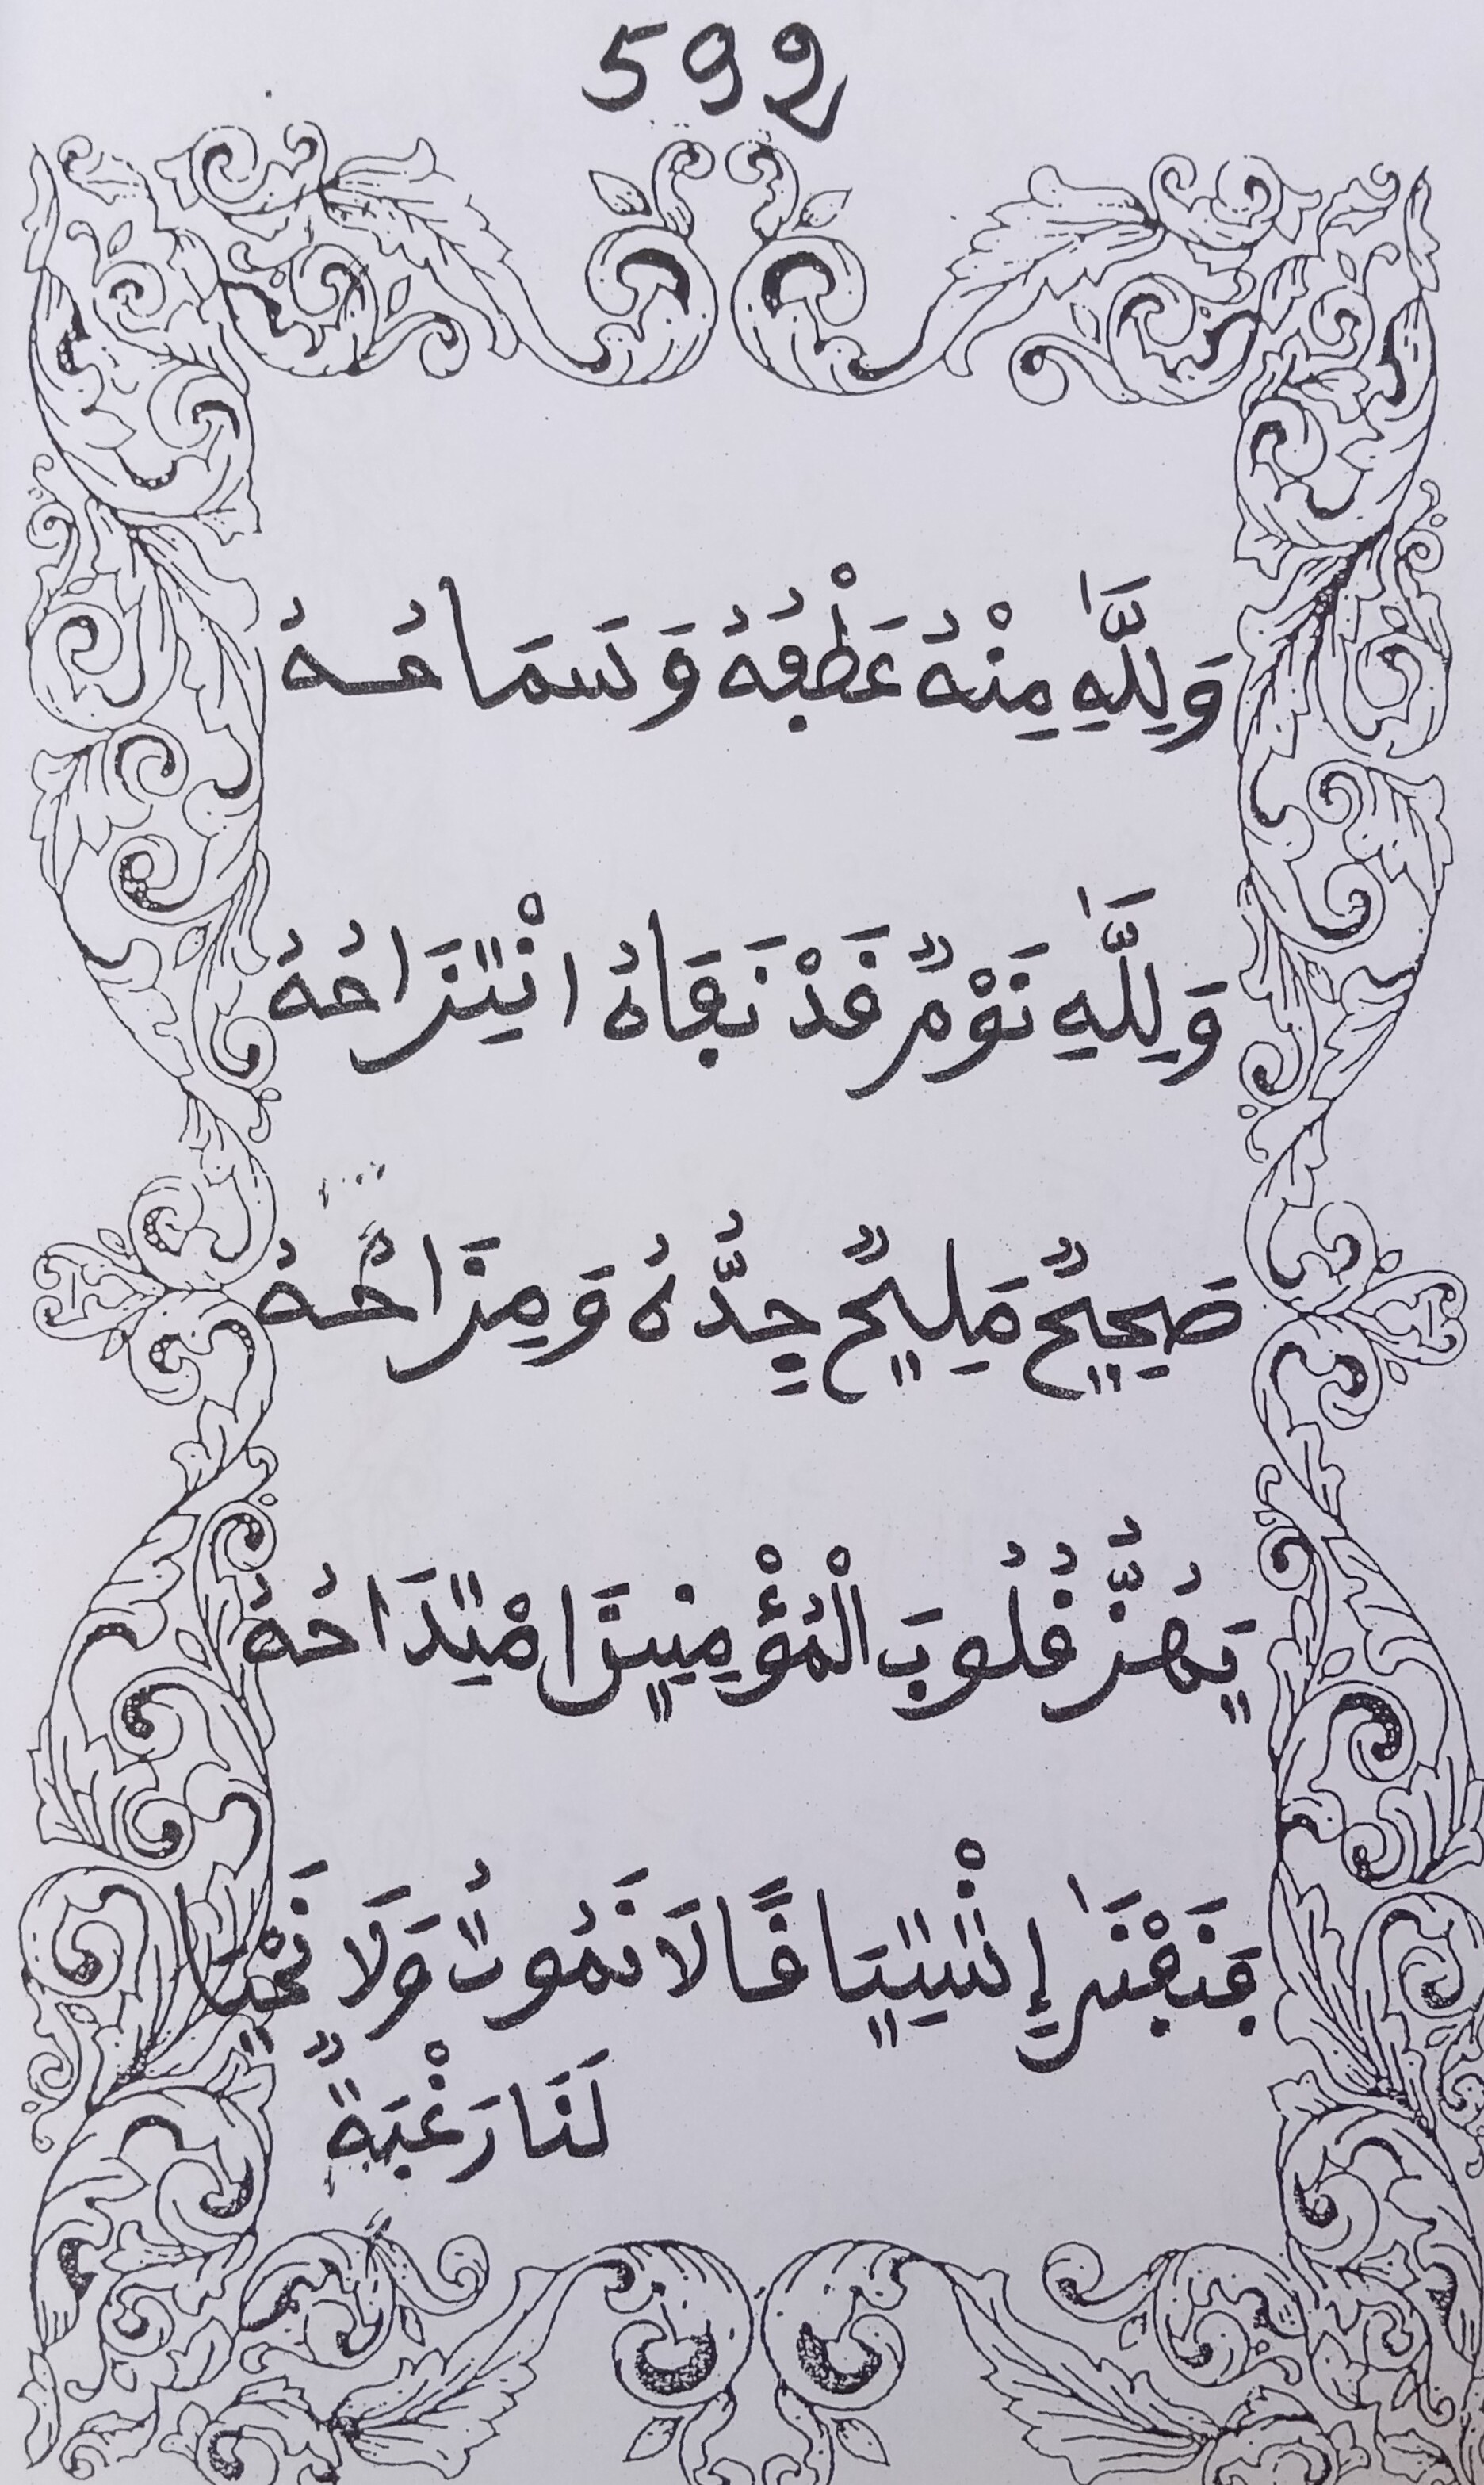 592
وَلِلَّٰهِ مِنْهُ عَطْفُهُ وَسَمَاحُهُ
وَلِلَّٰهِ نَوْمٌ قَدْ نَفَاهُ انْتِزَاحُهُ
صَحِيحٌ مَلِيحٌ جِدُّهُ وَمِزَاحُهُ
يَهُزُّ قُلُوبَ الْمُؤْمِنِينَ امْتِدَاحُهُ
فَنَفْنَىٰ إِشْتِيَاقًا لَا نَمُوتُ وَلَا نَحْيَا
لَنَا رَغْبَةٌ